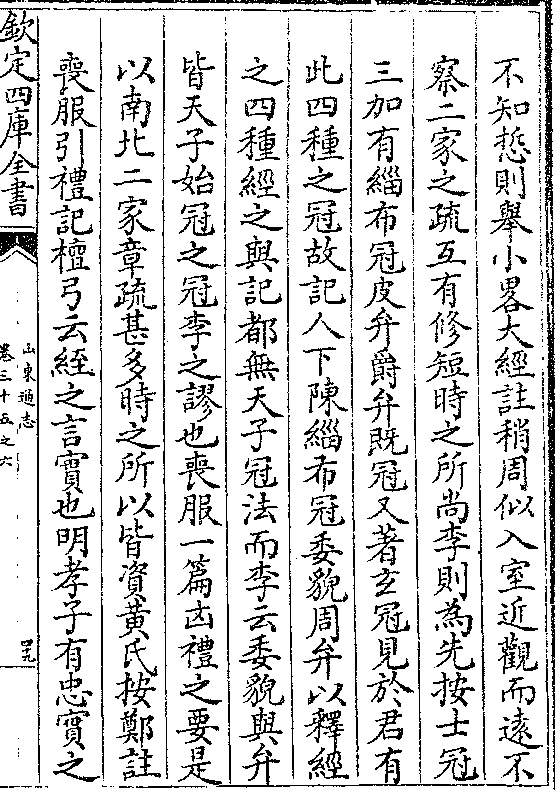 不知悊則舉小畧大經註稍周似入室近觀而遠不
察二家之疏互有修短時之所尚李則為先按士冠
三加有緇布冠皮弁爵弁既冠又著玄冠見於君有
此四種之冠故記人下陳緇布冠委貌周弁以釋經
之四種經之與記都無天子冠法而李云委貌與弁
皆天子始冠之冠李之謬也喪服一篇凶禮之要是
以南北二家章疏甚多時之所以皆資黃氏按鄭註
喪服引禮記檀弓云絰之言實也明孝子有忠實之
欽定四庫全書
山東通志
卷三十五之六
四九